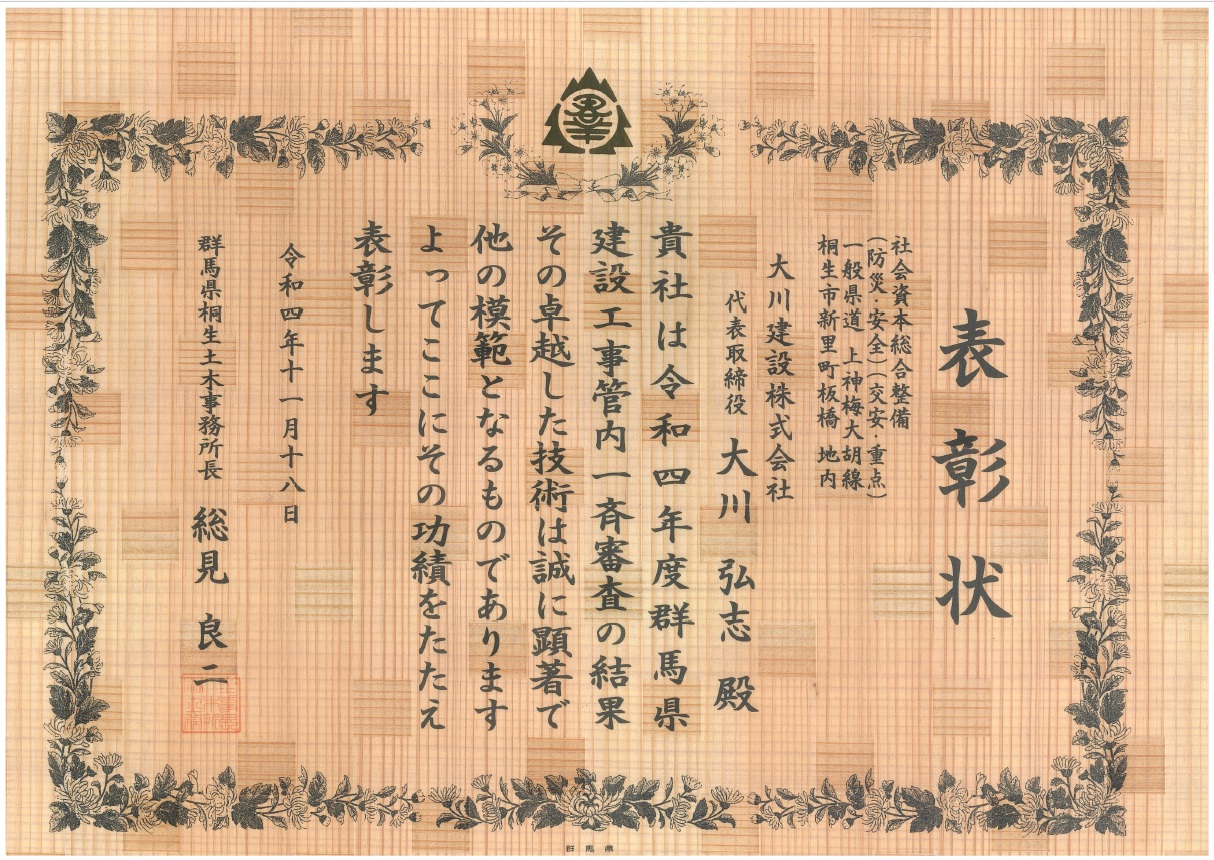 表彰状
社会資本総合整備
(防災・安全)(交安・重点)
一般県道 上神梅大胡線
桐生市新里町板橋 地内
大川建設株式会社
代表取締役 大川 弘志 殿
貴社は令和四年度群馬県
建設工事管内一斉審査の結果
その卓越した技術は誠に顕著で
他の模範となるものであります
よってここにその功績をたたえ
表彰します
令和四年十一月十八日
群馬県桐生土木事務所長 総見 良二
群馬県